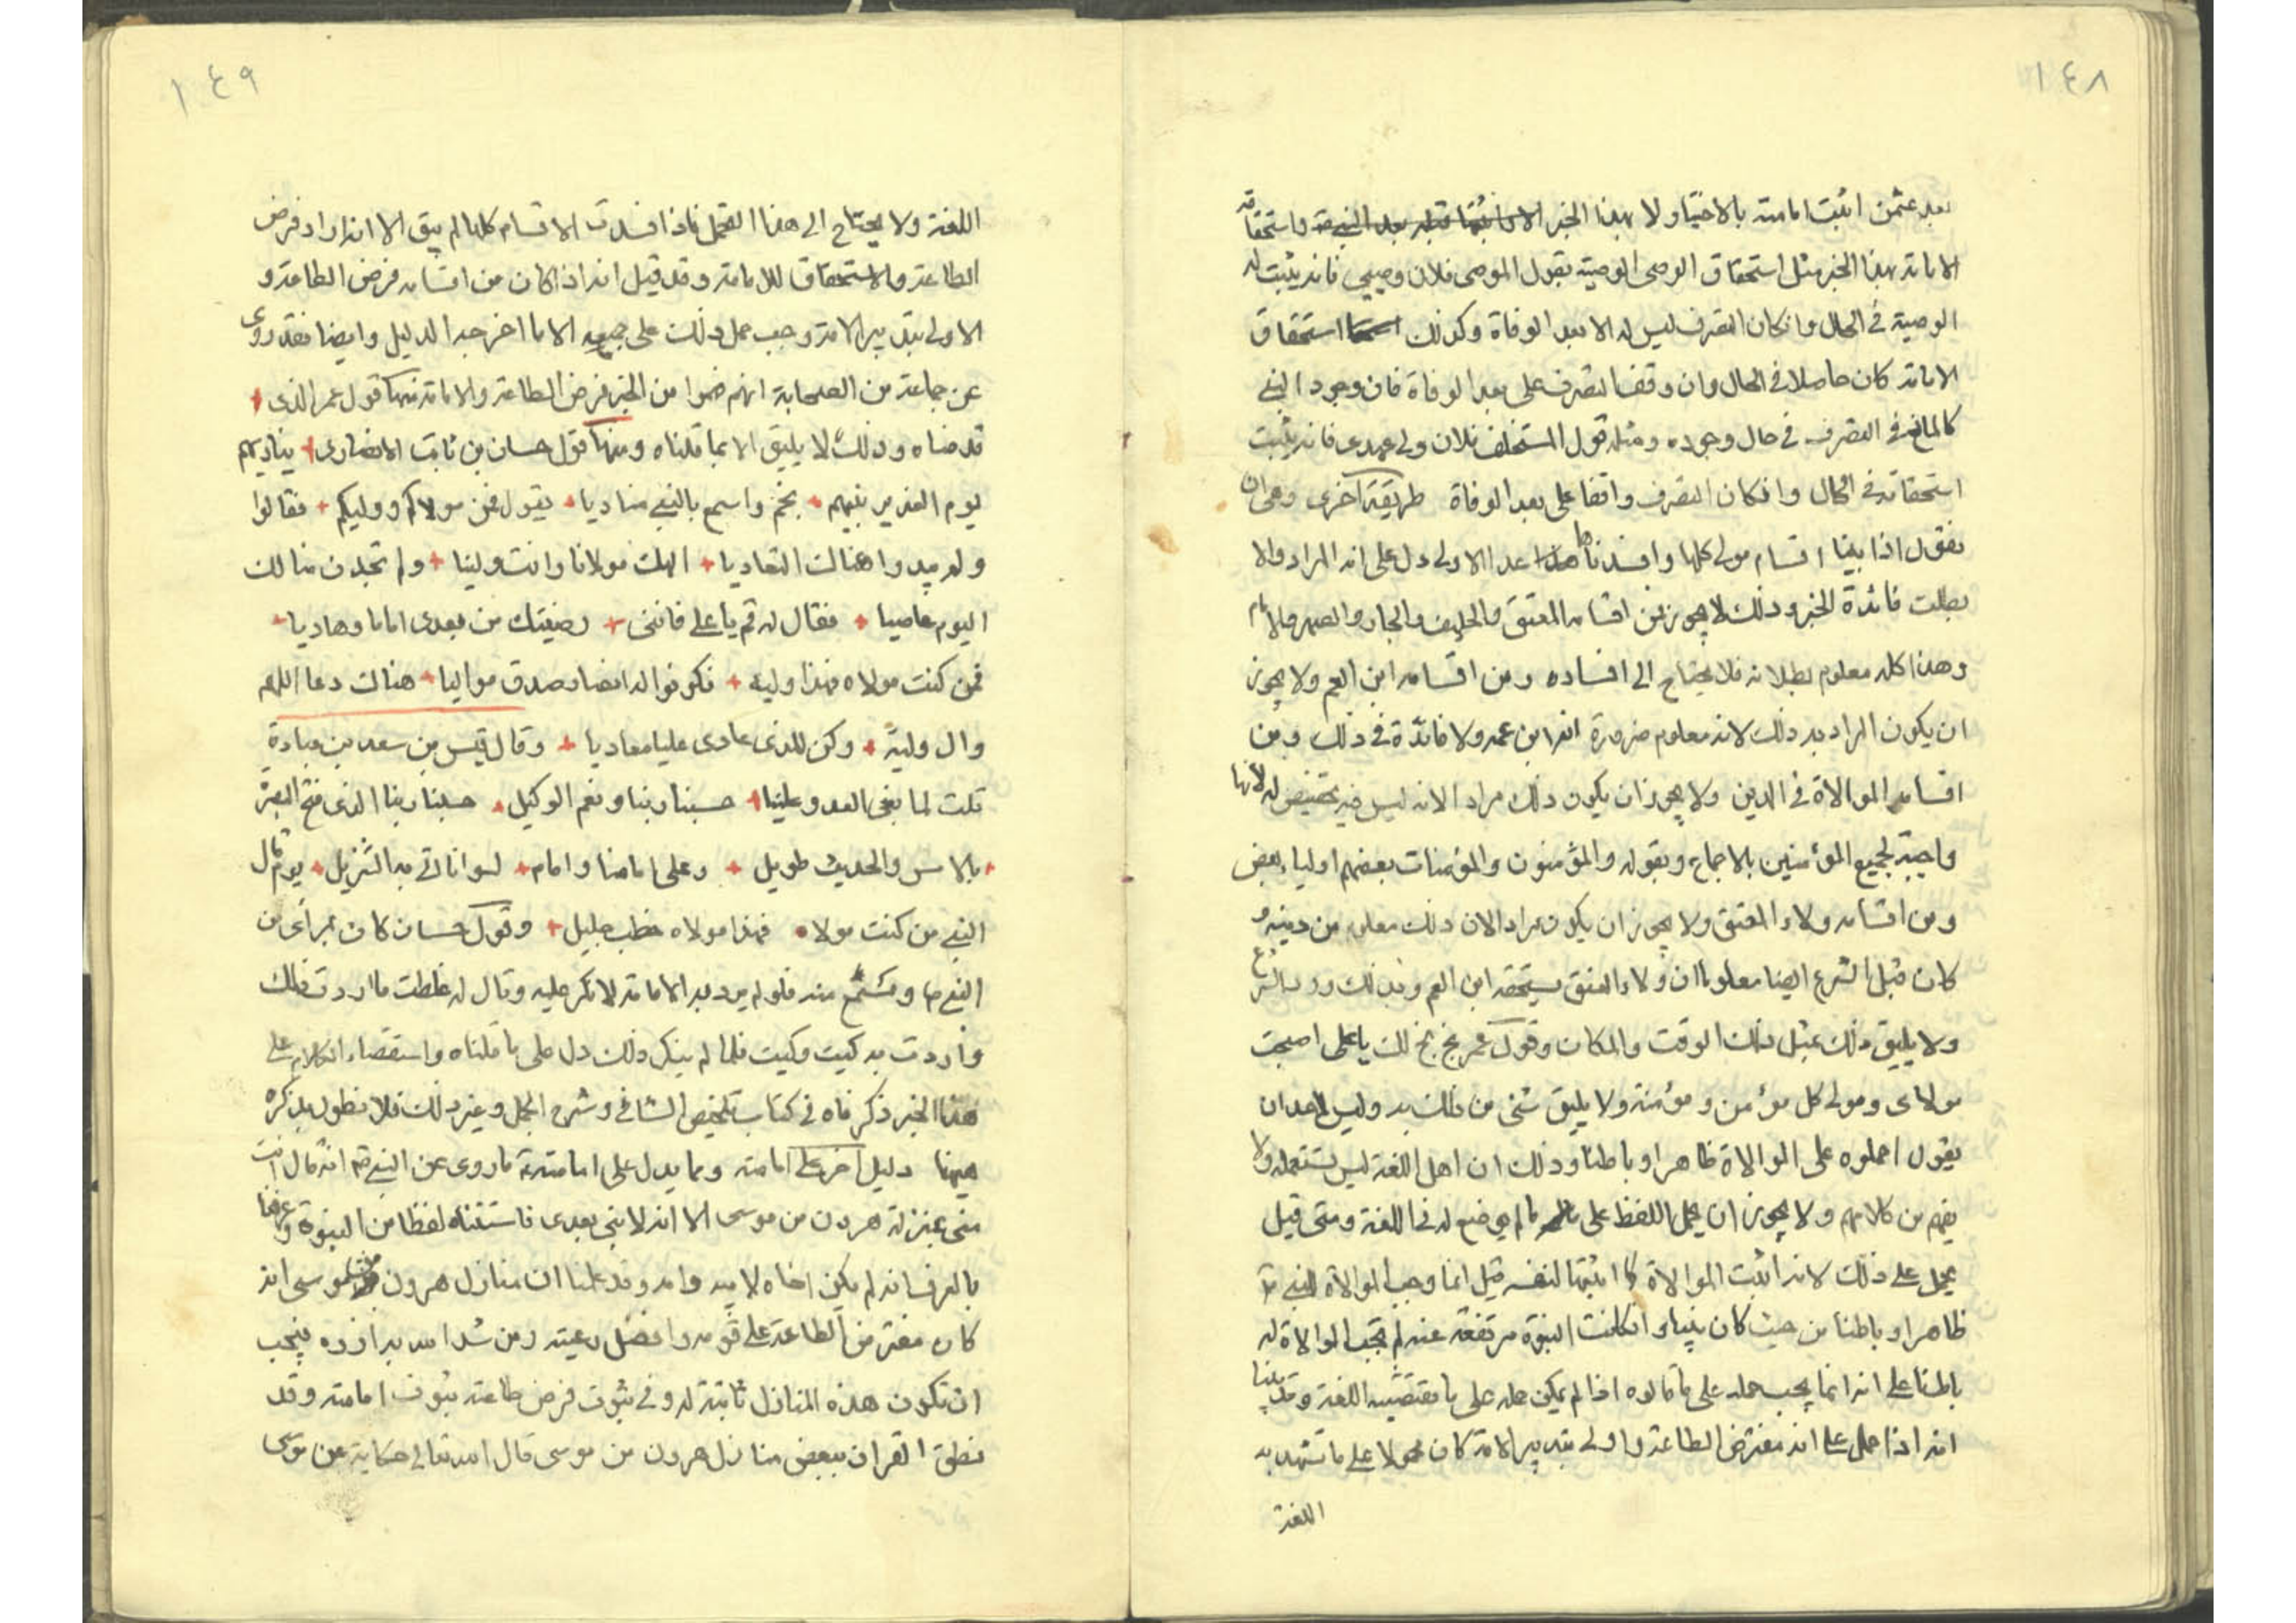 ١٤٨
بعد عثمن اثبت امامته بالاختيار لا بهذا الخبر واستحقاقه
الامامة بهذا الخبر مثل استحقاق الوصى الوصية بقول الموصى فلان وصيي فانه يثبت له
الوصية في الحال وان كان التصرف ليس له الا بعد الوفاة وكذلك استحقاق
الامامة كان حاصلا في الحال وان وقف التصرف على بعد الوفاة فان وجود النبي
كالمانع في التصرف في حال وجوده ومثله قول المستخلف فلان ولى عهدى فانه يثبت
استحقاقه في الحال وان كان التصرف واقفا على بعد الوفاة طريقة اخرى وهى ان
نقول اذا بينا اقسام مولى كلها وافسدناها عدا الاولى دل على انه المراد والا
بطلت فائدة الخبر وذلك لا يجوز فمن اقسامه المعتق والحليف والجار والصهر والامام
وهذا كله معلوم بطلانه فلا يحتاج الى افساده ومن اقسامه ابن العم ولا يجوز
ان يكون المراد به ذلك لانه معلوم ضرورة انه ابن عمه ولا فائدة في ذلك ومن
اقسامه الموالاة في الدين ولا يجوز ان يكون ذلك مرادا لانه ليس فيه تخصيص له لانها
واجبة لجميع المؤمنين بالاجماع وبقوله والمؤمنون والمؤمنات بعضهم اولياء بعض
ومن اقسامه ولاء المعتق ولا يجوز ان يكون مرادا لان ذلك معلوم من دينه و
كان قبل الشرع ايضا معلوما ان ولاء العتق يستحقه ابن العم وبذلك ورد الشرع
ولا يليق ذلك بمثل ذلك الوقت والمكان وقول عمر بخ بخ لك يا على اصبحت
مولاى ومولى كل مؤمن ومؤمنة ولا يليق شئ من ذلك به وليس لاحد ان
يقول احملوه على الموالاة ظاهرا وباطنا وذلك ان اهل اللغة ليس تستعمله ولا
يفهم من كلامهم ولا يجوز ان يحمل اللفظ على ما لم يوضع له في اللغة ومتى قيل
يحمل على ذلك لانه اثبت الموالاة كما اثبتها لنفسه قيل انما وجب الموالاة للنبي ص
ظاهرا وباطنا من حيث كان نبيا ولو كانت النبوة مرتفعة عنه لم تجب الموالاة له
باطنا على انه انما يجب حمله على ما قالوه اذا لم يمكن حمله على ما تقتضيه اللغة وقد بينا
انه اذا حمل على انه مفترض الطاعة واولى بتدبير الامة كان محمولا على ما تشهد به
اللغة
١٤٩
اللغة ولا يحتاج الى هذا التمحل فاذا فسدت الاقسام كلها لم يبق الا انه اراد فرض
الطاعة والاستحقاق للامامة وقد قيل انه اذا كان من اقسامه فرض الطاعة و
الاولى بتدبير الامة وجب حمل ذلك على جميعه الا ما اخرجه الدليل وايضا فقد روى
عن جماعة من الصحابة انهم فهموا من الخبر فرض الطاعة والامامة منها قول عمر الذى
قدمناه وذلك لا يليق الا بما قلناه ومنها قول حسان بن ثابت الانصارى يناديهم
يوم الغدير نبيهم بخم واسمع بالنبي مناديا يقول فمن مولاكم ووليكم فقالوا
ولم يبدوا هناك التعاديا الهك مولانا وانت ولينا ولم تجدن منا لك
اليوم عاصيا فقال له قم يا على فاننى رضيتك من بعدى اماما وهاديا
فمن كنت مولاه فهذا وليه فكونوا له انصار صدق مواليا هناك دعا اللهم
وال وليه وكن للذى عادى عليا معاديا وقال قيس بن سعد بن عبادة
قلت لما بغى العدو علينا حسبنا ربنا ونعم الوكيل حسبنا ربنا الذى فتح البصرة
بالامس والحديث طويل وعلى امامنا وامام لسوانا اتى به التنزيل يوم قال
النبي من كنت مولاه فهذا مولاه خطب جليل وقول حسان كان بمرأى من
النبي ص ومستمع منه فلو لم يرد به الامامة لانكر عليه وقال له غلطت ما اردت ذلك
واردت به كيت وكيت فلما لم ينكر ذلك دل على ما قلناه واستقصاء الكلام على
هذا الخبر ذكرناه في كتاب تلخيص الشافي وشرح الجمل وغير ذلك فلا نطول بذكره
هيهنا دليل اخر على امامته ومما يدل على امامته ع ما روى عن النبي ص انه قال انت
منى بمنزلة هرون من موسى الا انه لا نبي بعدى فاستثناه لفظا من النبوة وعرفنا
بالعرف انه لم يكن اخاه لابيه وامه وقد علمنا ان منازل هرون من موسى انه
كان مفترض الطاعة على قومه وافضل رعيته ومن شد الله به ازره فيجب
ان تكون هذه المنازل ثابتة له وفي ثبوت فرض طاعته ثبوت امامته وقد
نطق القران ببعض منازل هرون من موسى قال الله تعالى حكاية عن موسى